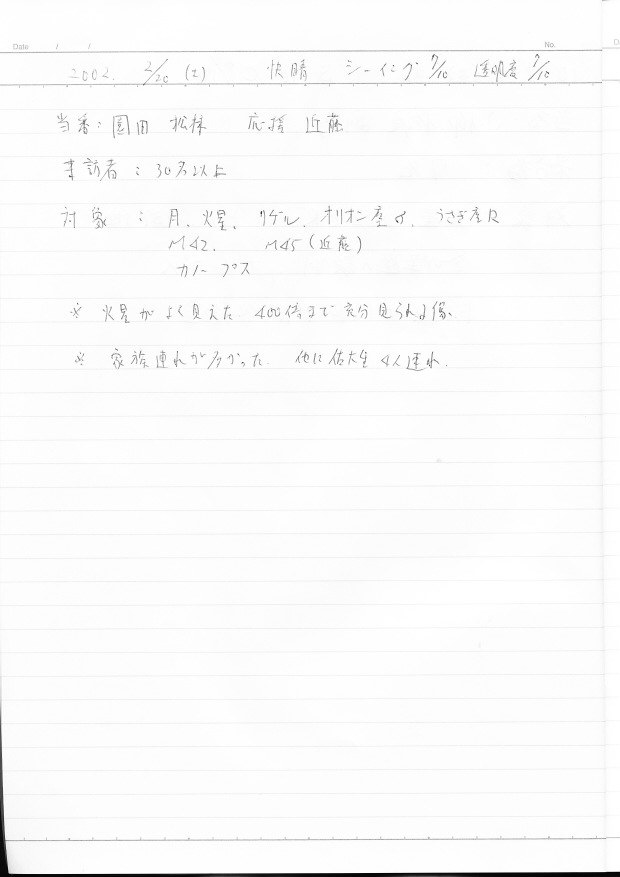 Date / /
No.
2002. 2/20 (土) 快晴 シーイング 7/10 透明度 7/10
当番：園田 松林 応援 近藤
来訪者：30名以上
対象：月、火星、リゲル、オリオン座σ、うさぎ座R
M42、 M45（近藤）
カノープス
※ 火星がよく見えた 400倍まで充分見られる像、
※ 家族連れが多かった 他に佐大生4人連れ.